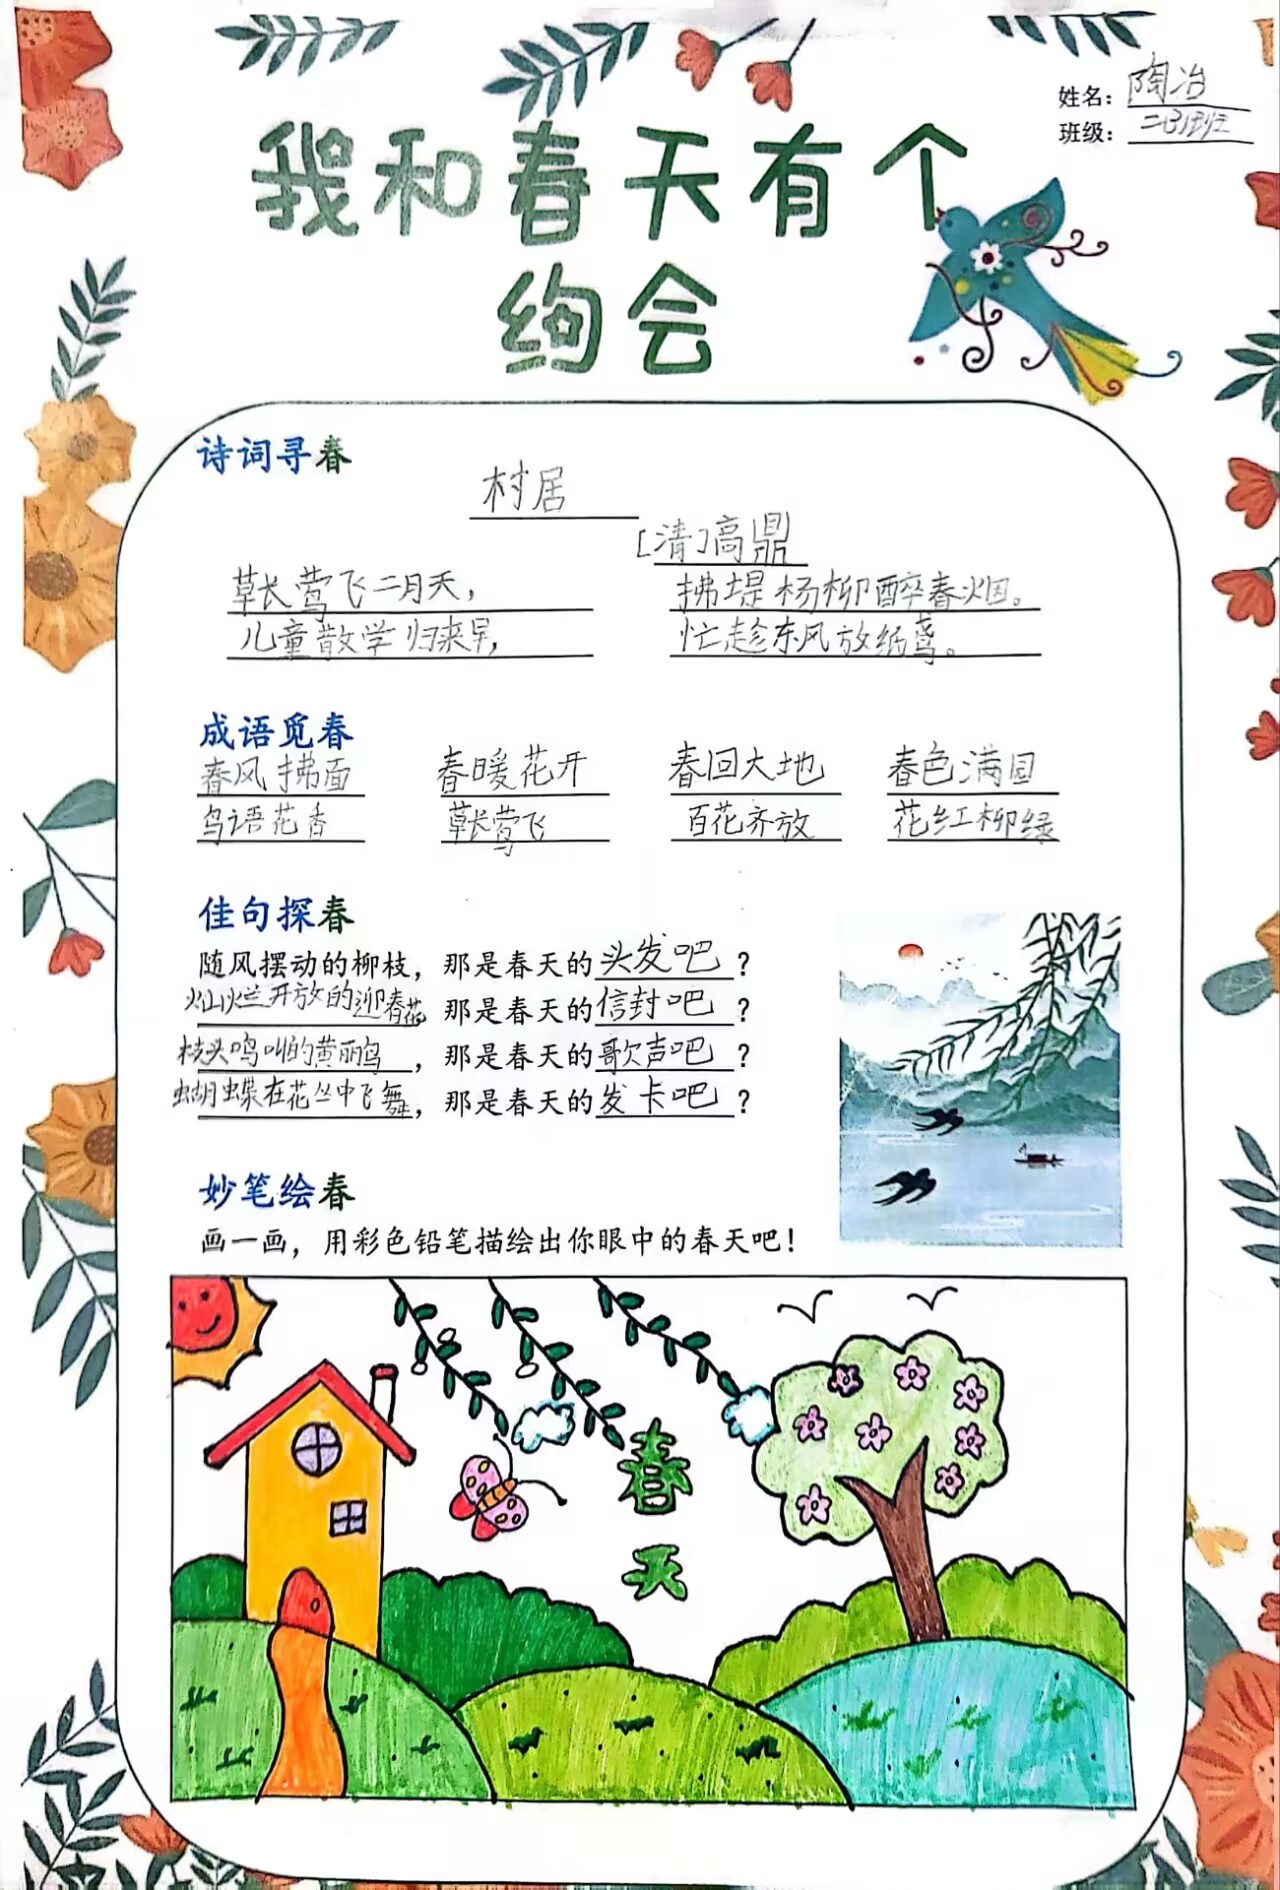 姓名：陶冶
班级：二(3)班
我和春天有个
约会
诗词寻春
村居
[清]高鼎
草长莺飞二月天，拂堤杨柳醉春烟。
儿童散学归来早，忙趁东风放纸鸢。
成语觅春
春风拂面 春暖花开 春回大地 春色满园
鸟语花香 草长莺飞 百花齐放 花红柳绿
佳句探春
随风摆动的柳枝，那是春天的头发吧？
灿烂开放的迎春花，那是春天的信封吧？
枝头鸣叫的黄丽鸟，那是春天的歌声吧？
蝴蝶在花丛中飞舞，那是春天的发卡吧？
妙笔绘春
画一画，用彩色铅笔描绘出你眼中的春天吧！
春
天